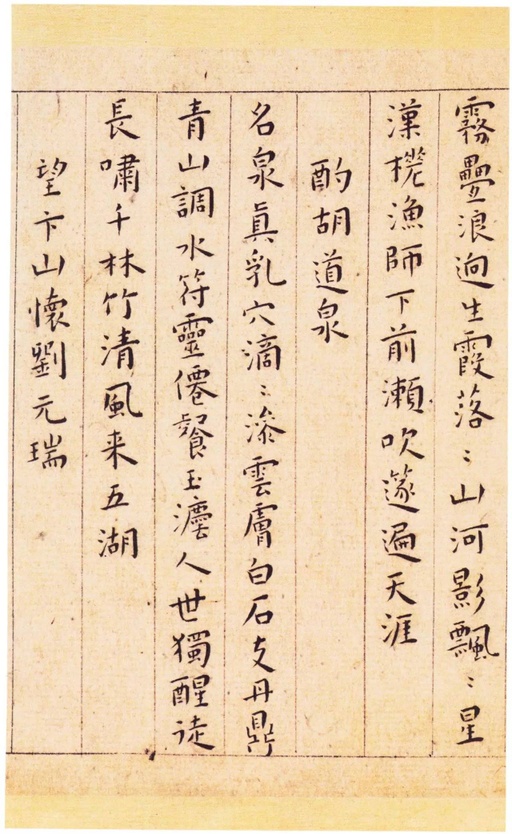 霧疊浪迥生霞落〻山河影飄〻星
漢槎漁師下前瀬吹篴遍天涯
酌胡道泉
名泉眞乳穴滴〻滲雲膚白石支丹鼎
青山調水符靈僊餐玉人世獨醒徒
長嘯千林竹清風来五湖
望卞山懷劉元瑞